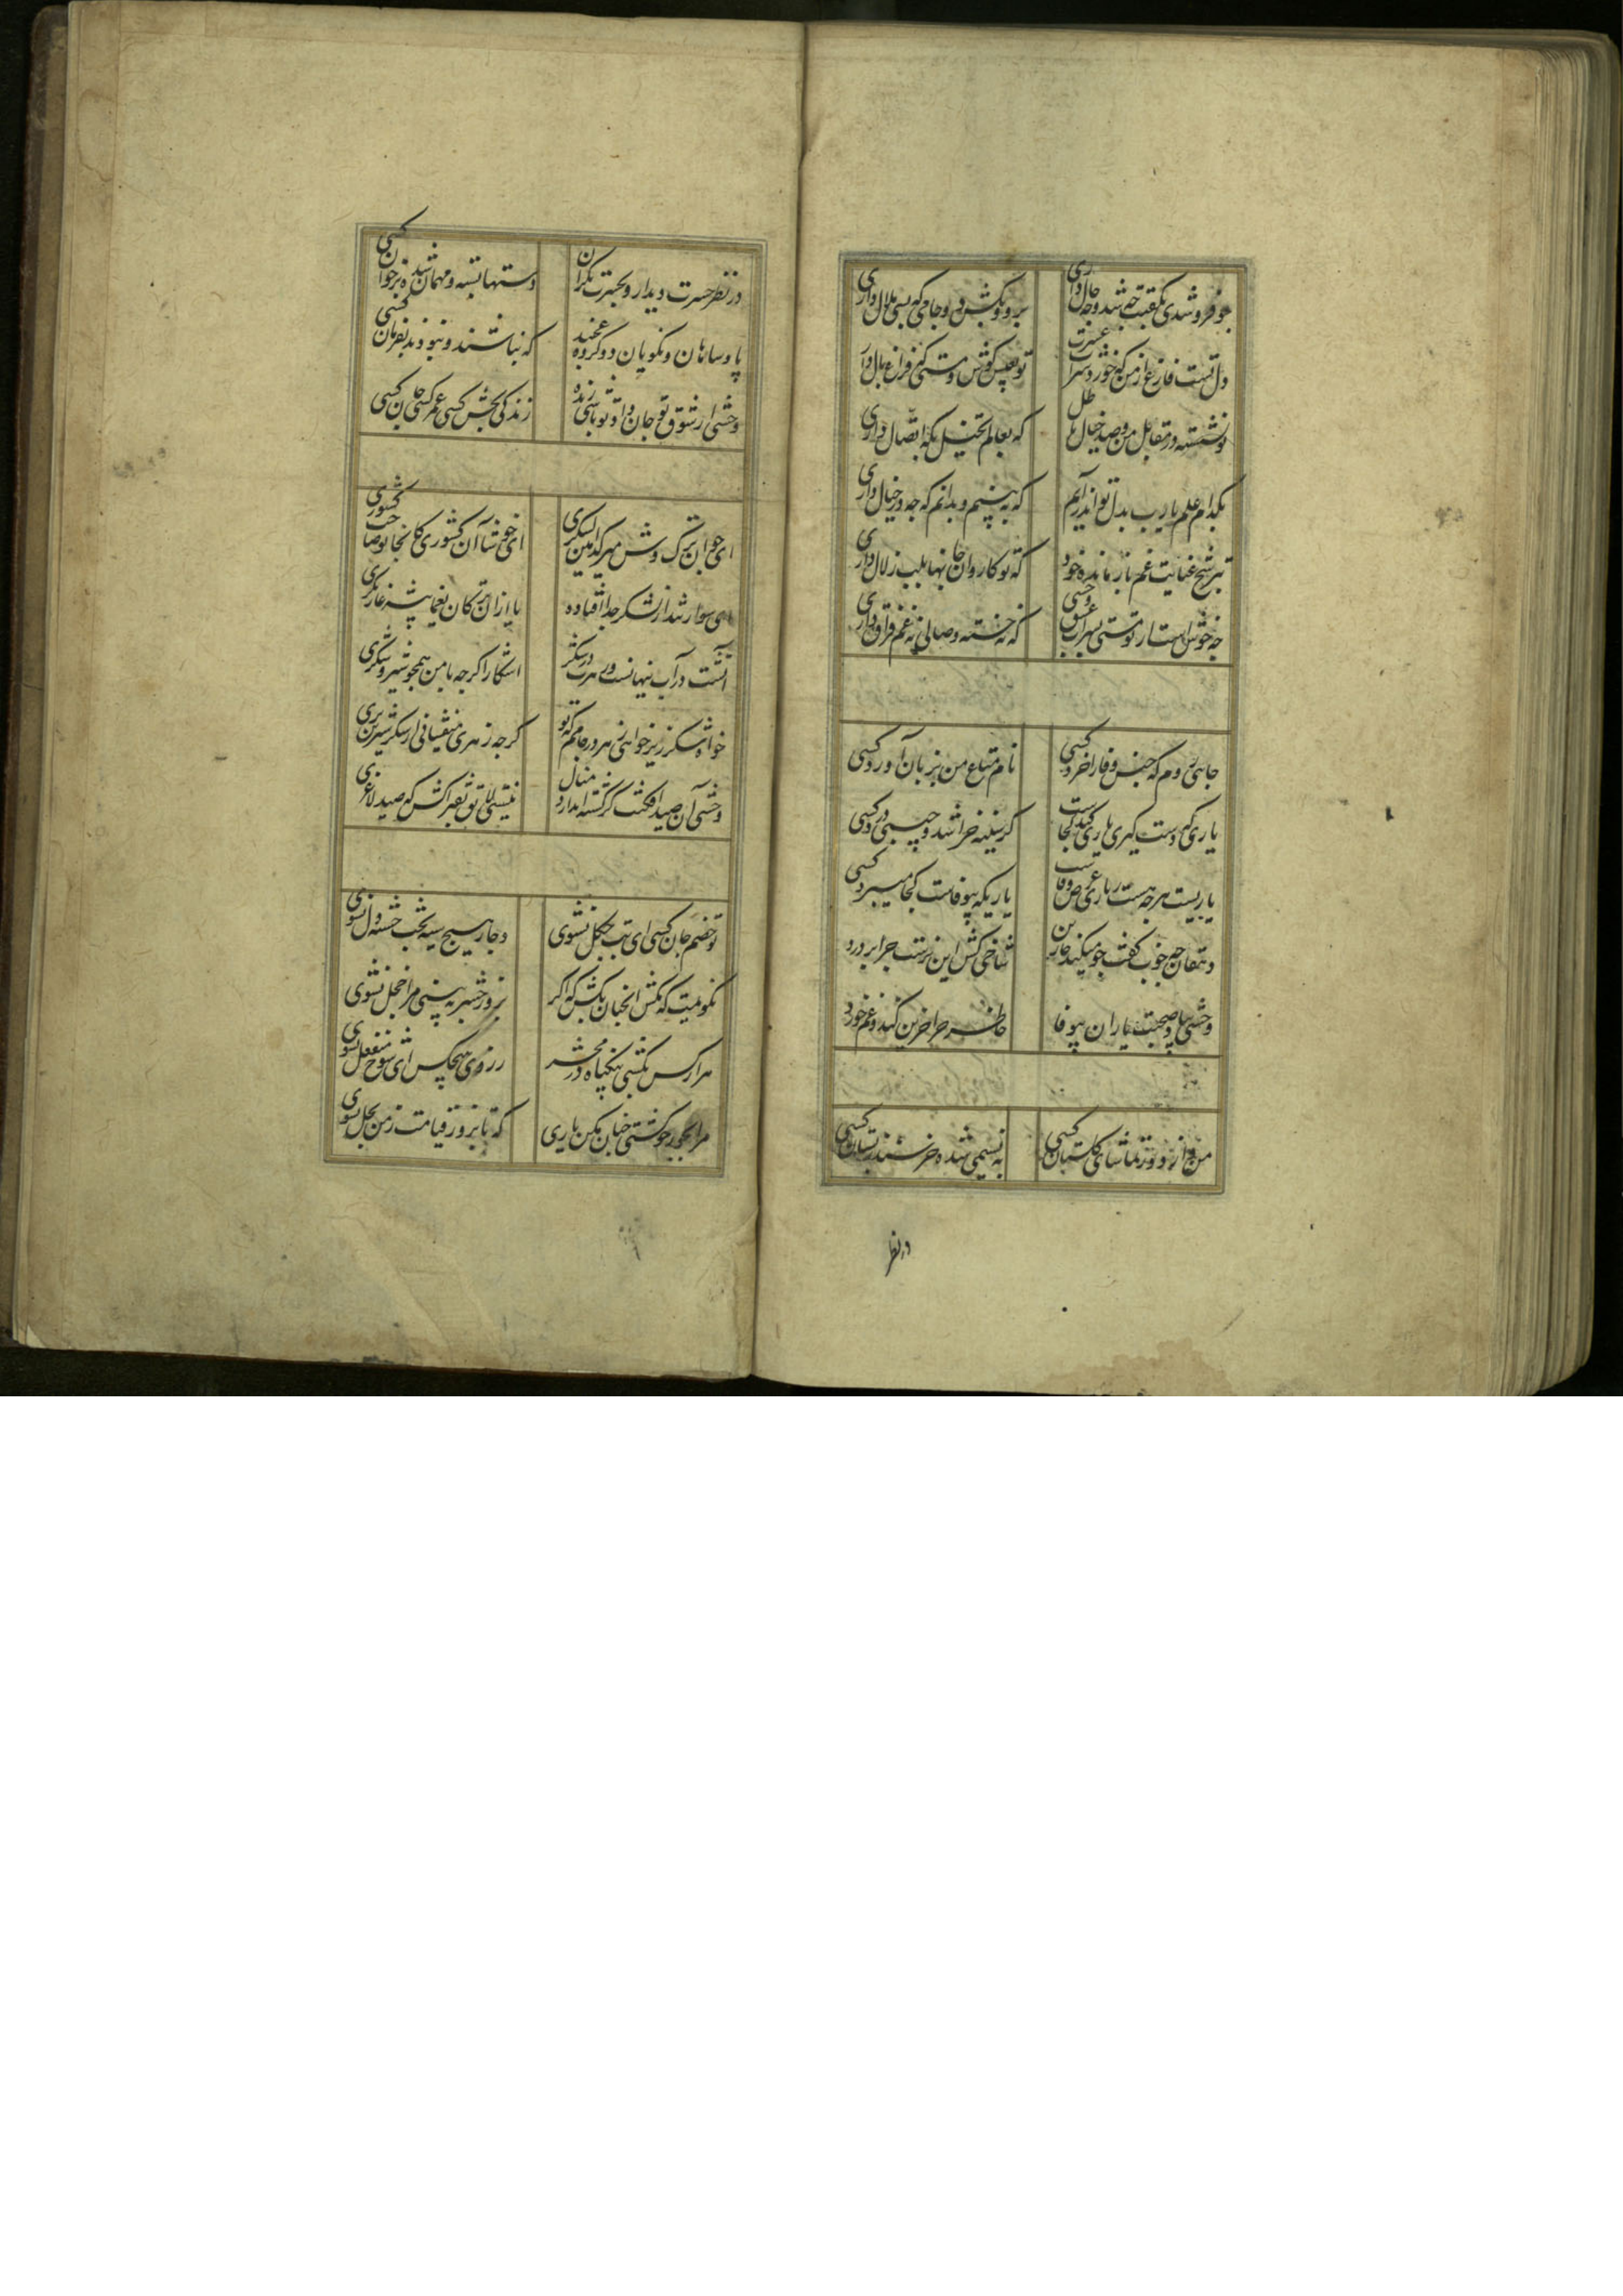 چو فرو شدی بعقبت چه شد و چه حال داری
برو و بکش دو جامی که بسی ملال داری
دل تست فارغ از من که خورد شراب عشرت
تو بعیش کوش و مستی که فراغ بال داری
تو نشسته در مقابل من و صد خیال باطل
که بعالم تخیل بکه اتصال داری
بکدام علم یا رب بدل تو اندر آیم
که ببینم و بدانم که چه در خیال داری
بترشح عنایت غم باز مانده خود
که تو کاروان جانها بلب زلال داری
چه خوشست از تو وحشی بشراب عشق مستی
که نه خسته وصالی نه غم فراق داری
جایی روم که جنس وفا را خرد کسی
نام متاع من بزبان آورد کسی
یاری که دستگیری یاری کند کجاست
گر سینه خراشد و جیبی درد کسی
یاریست هر چه هست و ز یاری غرض وفاست
یاری که بیوفاست کجا میبرد کسی
دهقان چه خوب گفت چو میکند خاربن
شاخی کش این برست چرا پرورد
وحشی بیاد صحبت یاران بیوفا
خاطر چرا حزین کند و غم خورد
من و از دور تماشای گلستان کسی
به نسیمی شده خرسند ز بستان کسی
در نظر
در نظر حسرت دیدار و بحسرت نگران
دستها بسته و مهمان شده بر خوان کسی
پادشاهان و نکویان دو گروه عجبند
که نباشند و نبودند بفرمان کسی
وحشی از شوق تو جان داد تو باشی زنده
زندگی بخش کسی عمر کسی جان کسی
ای جوان ترک وش میر کدامین لشکری
ای خوشا آن کشوری کانجا تو صاحب کشوری
ای سوار شد از لشکر جدا افتاده
یا از آن ترکان یغما پیشه غارتگری
آتشت در آب پنهانست و زهرت در شکر
آشکارا گر چه با من همچو شیر و شکری
خواه شکر ریز خواهی زهر در جامم که تو
گر چه زهری میفشانی از شکر شیرین تری
وحشی آن صید افکنت گر کشته اندازد منال
نیستی لایق تو بفتراکش که صید لاغری
تو خصم جان کسی ای بت چگل نشوی
دچار هیچ سیه بخت خسته دل نشوی
نگویمت که مکش آنچنان بکش که اگر
بروز حشر به بینی مرا خجل نشوی
هزار کس بکشی بیگناه و در محشر
ز روی هیچکس ای شوخ منفعل نشوی
مرا بجور چو کشتی چنان مکن باری
که تا بروز قیامت ز من بحل نشوی